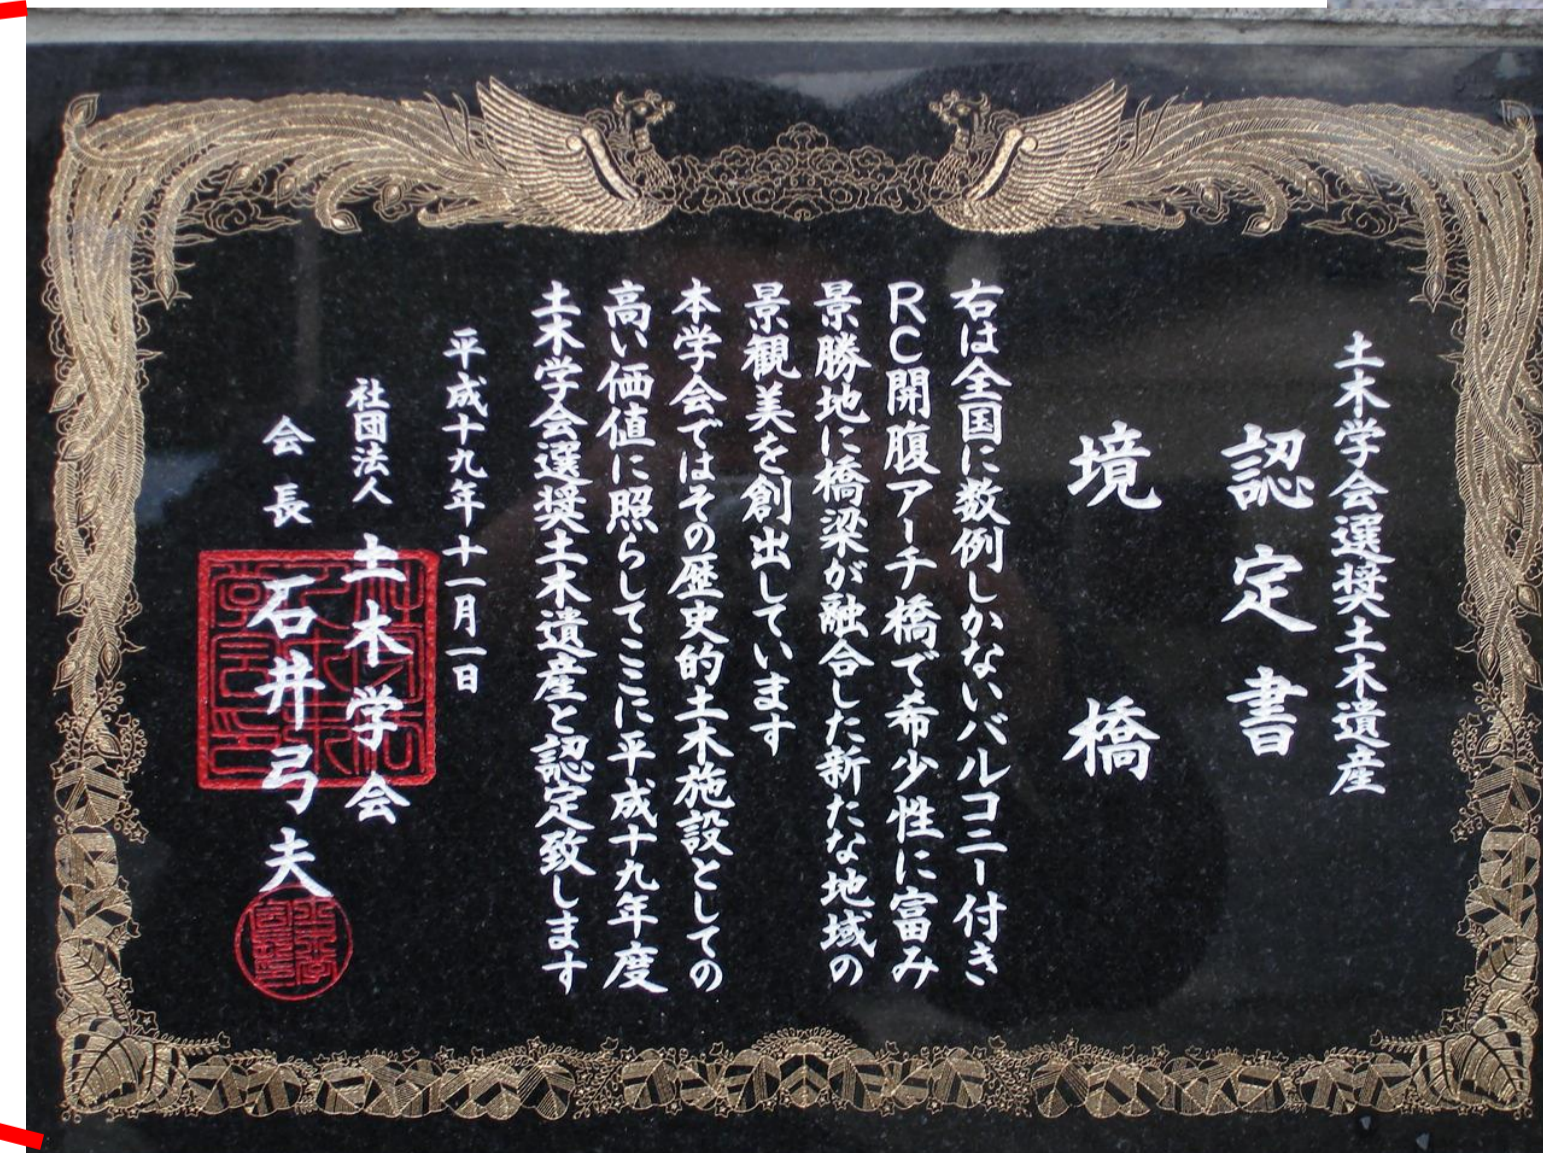 土木学会選奨土木遺産
認定書
境橋
右は全国に数例しかないバルコニー付き
RC開腹アーチ橋で希少性に富み
景勝地に橋梁が融合した新たな地域の
景観美を創出しています
本学会ではその歴史的土木施設としての
高い価値に照らしてここに平成十九年度
土木学会選奨土木遺産と認定致します
平成十九年十一月一日
社団法人 土木学会
会長 石井弓夫